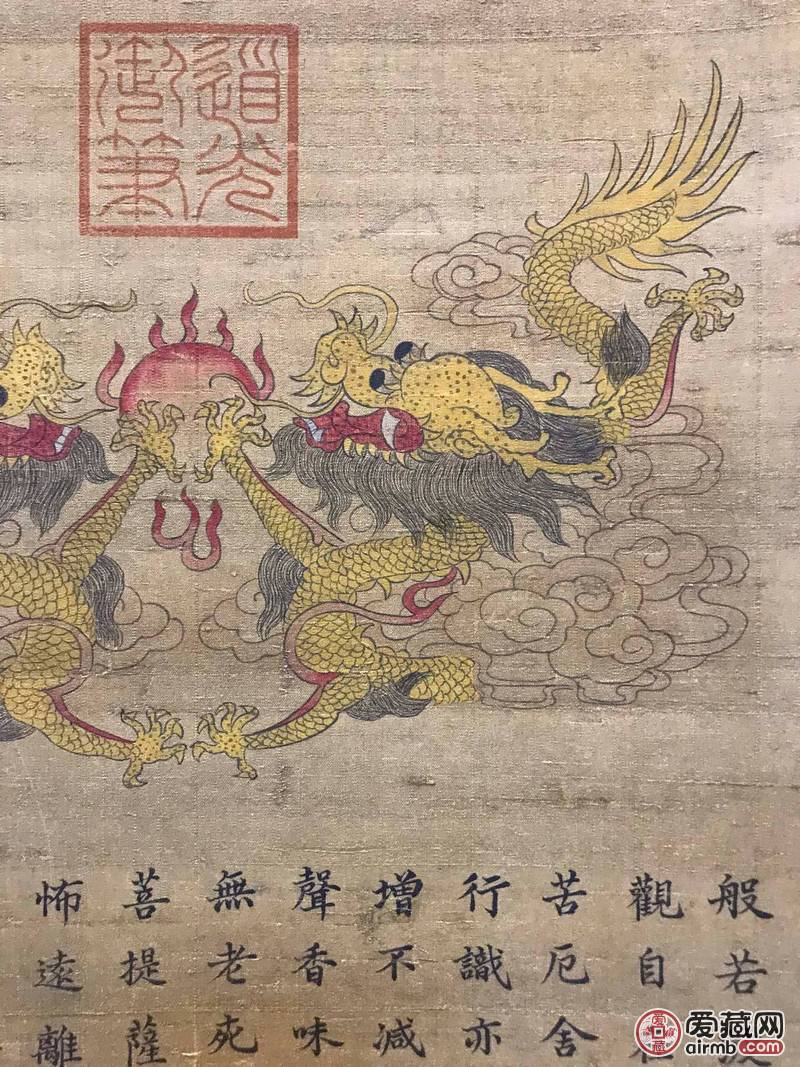 道光
御筆
般若
觀自
苦厄舍
行識亦
增不减
聲香味
無老死
菩提薩
怖遠離
爱藏网
airmb.com